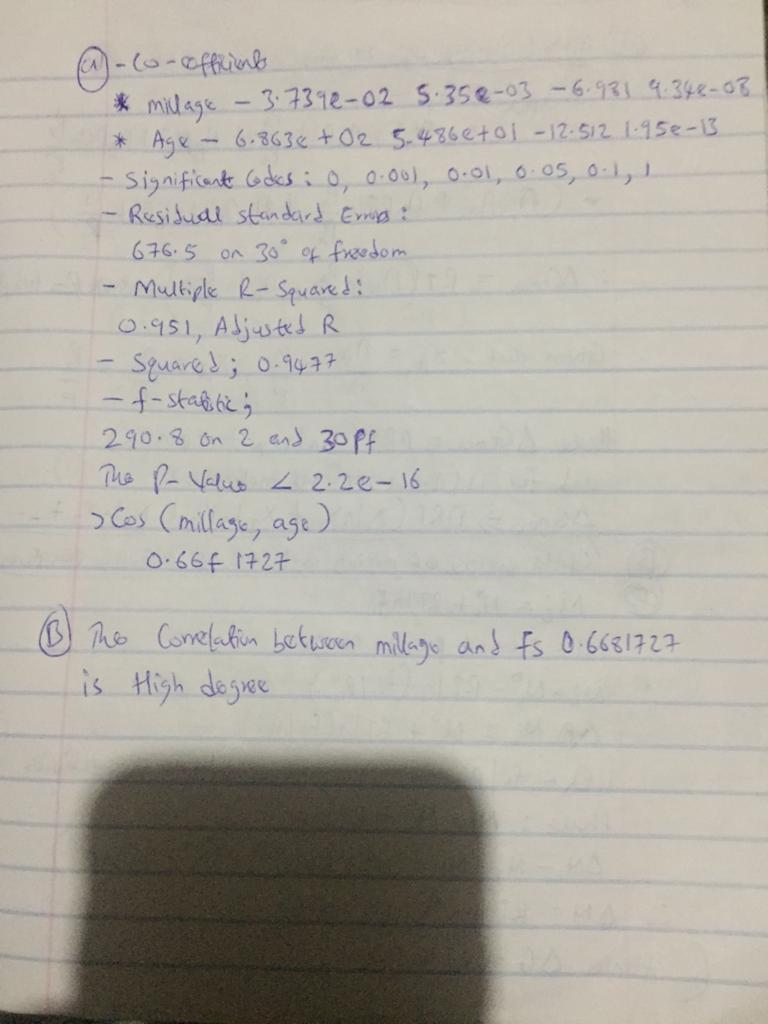 (a) - Co-efficients
* millage - 3.739e-02 5.35e-03 -6.981 9.34e-08
* Age - 6.863e + 02 5.486e+01 -12.512 1.95e-13
- Significant Codes : 0, 0.001, 0.01, 0.05, 0.1, 1
- Residual standard Errors :
676.5 on 30° of freedom
- Multiple R-Squared:
0.951, Adjusted R
- Squared ; 0.9477
- f-statistic ;
290.8 on 2 and 30 Pf
The P-Value < 2.2e-16
> Cos (millage, age)
0.66f 1727
(B) The Correlation between millage and Fs 0.6681727
is High degree